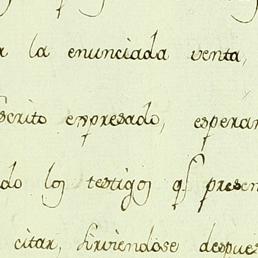 la enunciada venta,
scrito expresado, esperan
do los testigos qe presen
citar, sirviendose despues